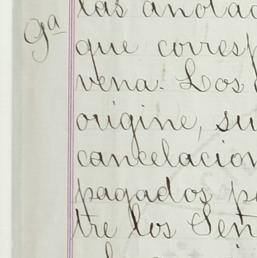 las anotac
9ª que corresp
vena. Los
origine, su
cancelacion
pagados p
tre los Señ